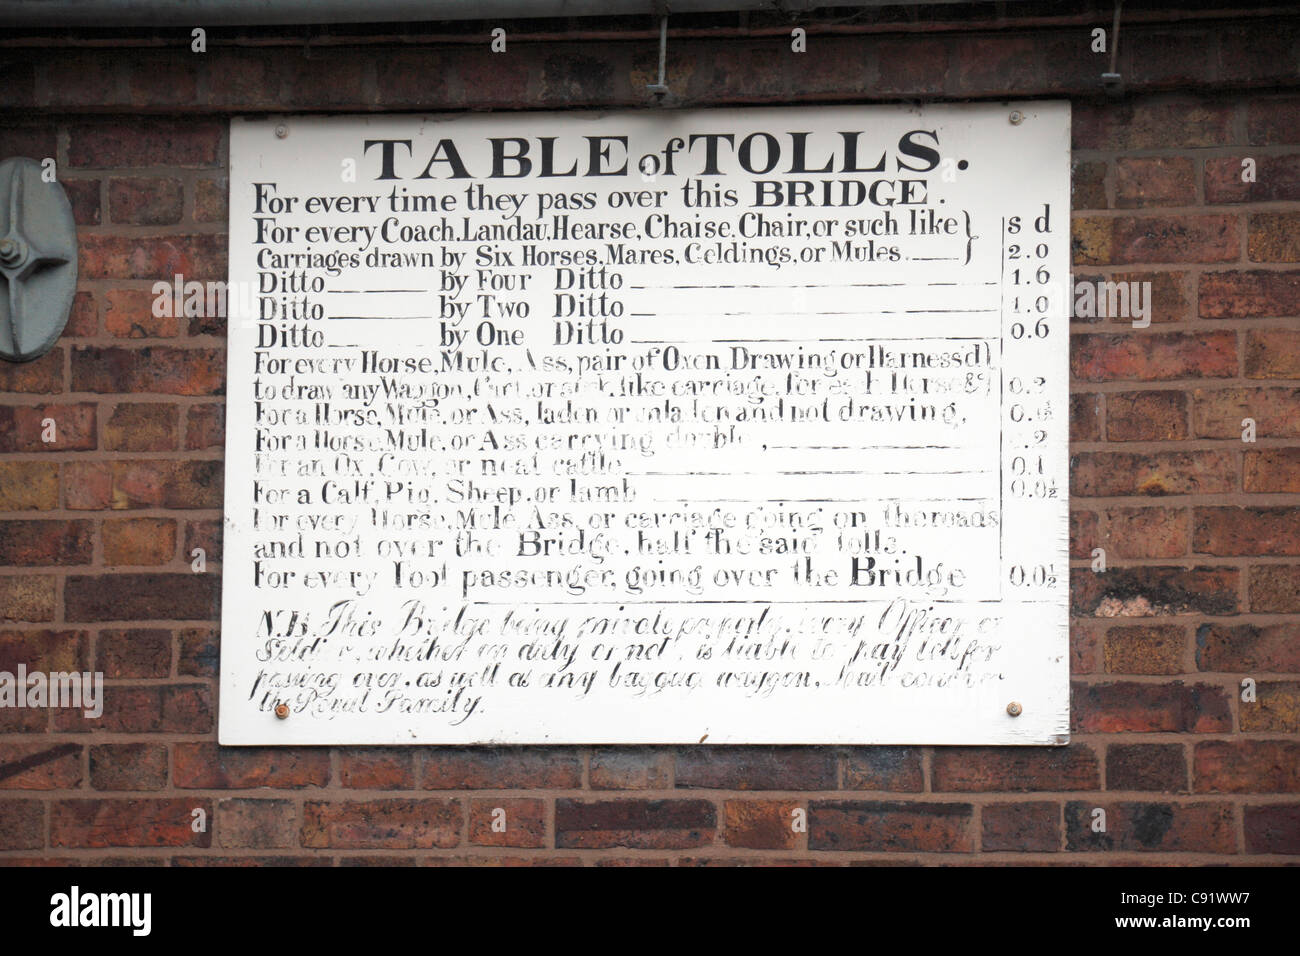 TABLE of TOLLS.
For every time they pass over this BRIDGE.
For every Coach, Landau, Hearse, Chaise, Chair, or such like } s d
Carriages drawn by Six Horses, Mares, Geldings, or Mules. } 2.0
Ditto by Four Ditto 1.6
Ditto by Two Ditto 1.0
Ditto by One Ditto 0.6
For every Horse, Mule, Ass, pair of Oxen, Drawing or Harness'd }
to draw any Waggon, Cart, or such like carriage, for each Horse &c } 0.2
For a Horse, Mule, or Ass, laden or unladen and not drawing, 0.1½
For a Horse, Mule, or Ass carrying double, .2
For an Ox, Cow, or neat cattle 0.1
For a Calf, Pig, Sheep, or lamb 0.0½
For every Horse, Mule, Ass, or carriage going on the roads
and not over the Bridge, half the said Tolls.
For every Foot passenger, going over the Bridge 0.0½
N.B. This Bridge being private property, every Officer or
Soldier, whether on duty or not, is liable to pay toll for
passing over, as well as any baggage waggon, Mail coach or
the Royal Family.
alamy
alamy
Image ID: C91WW7
www.alamy.com